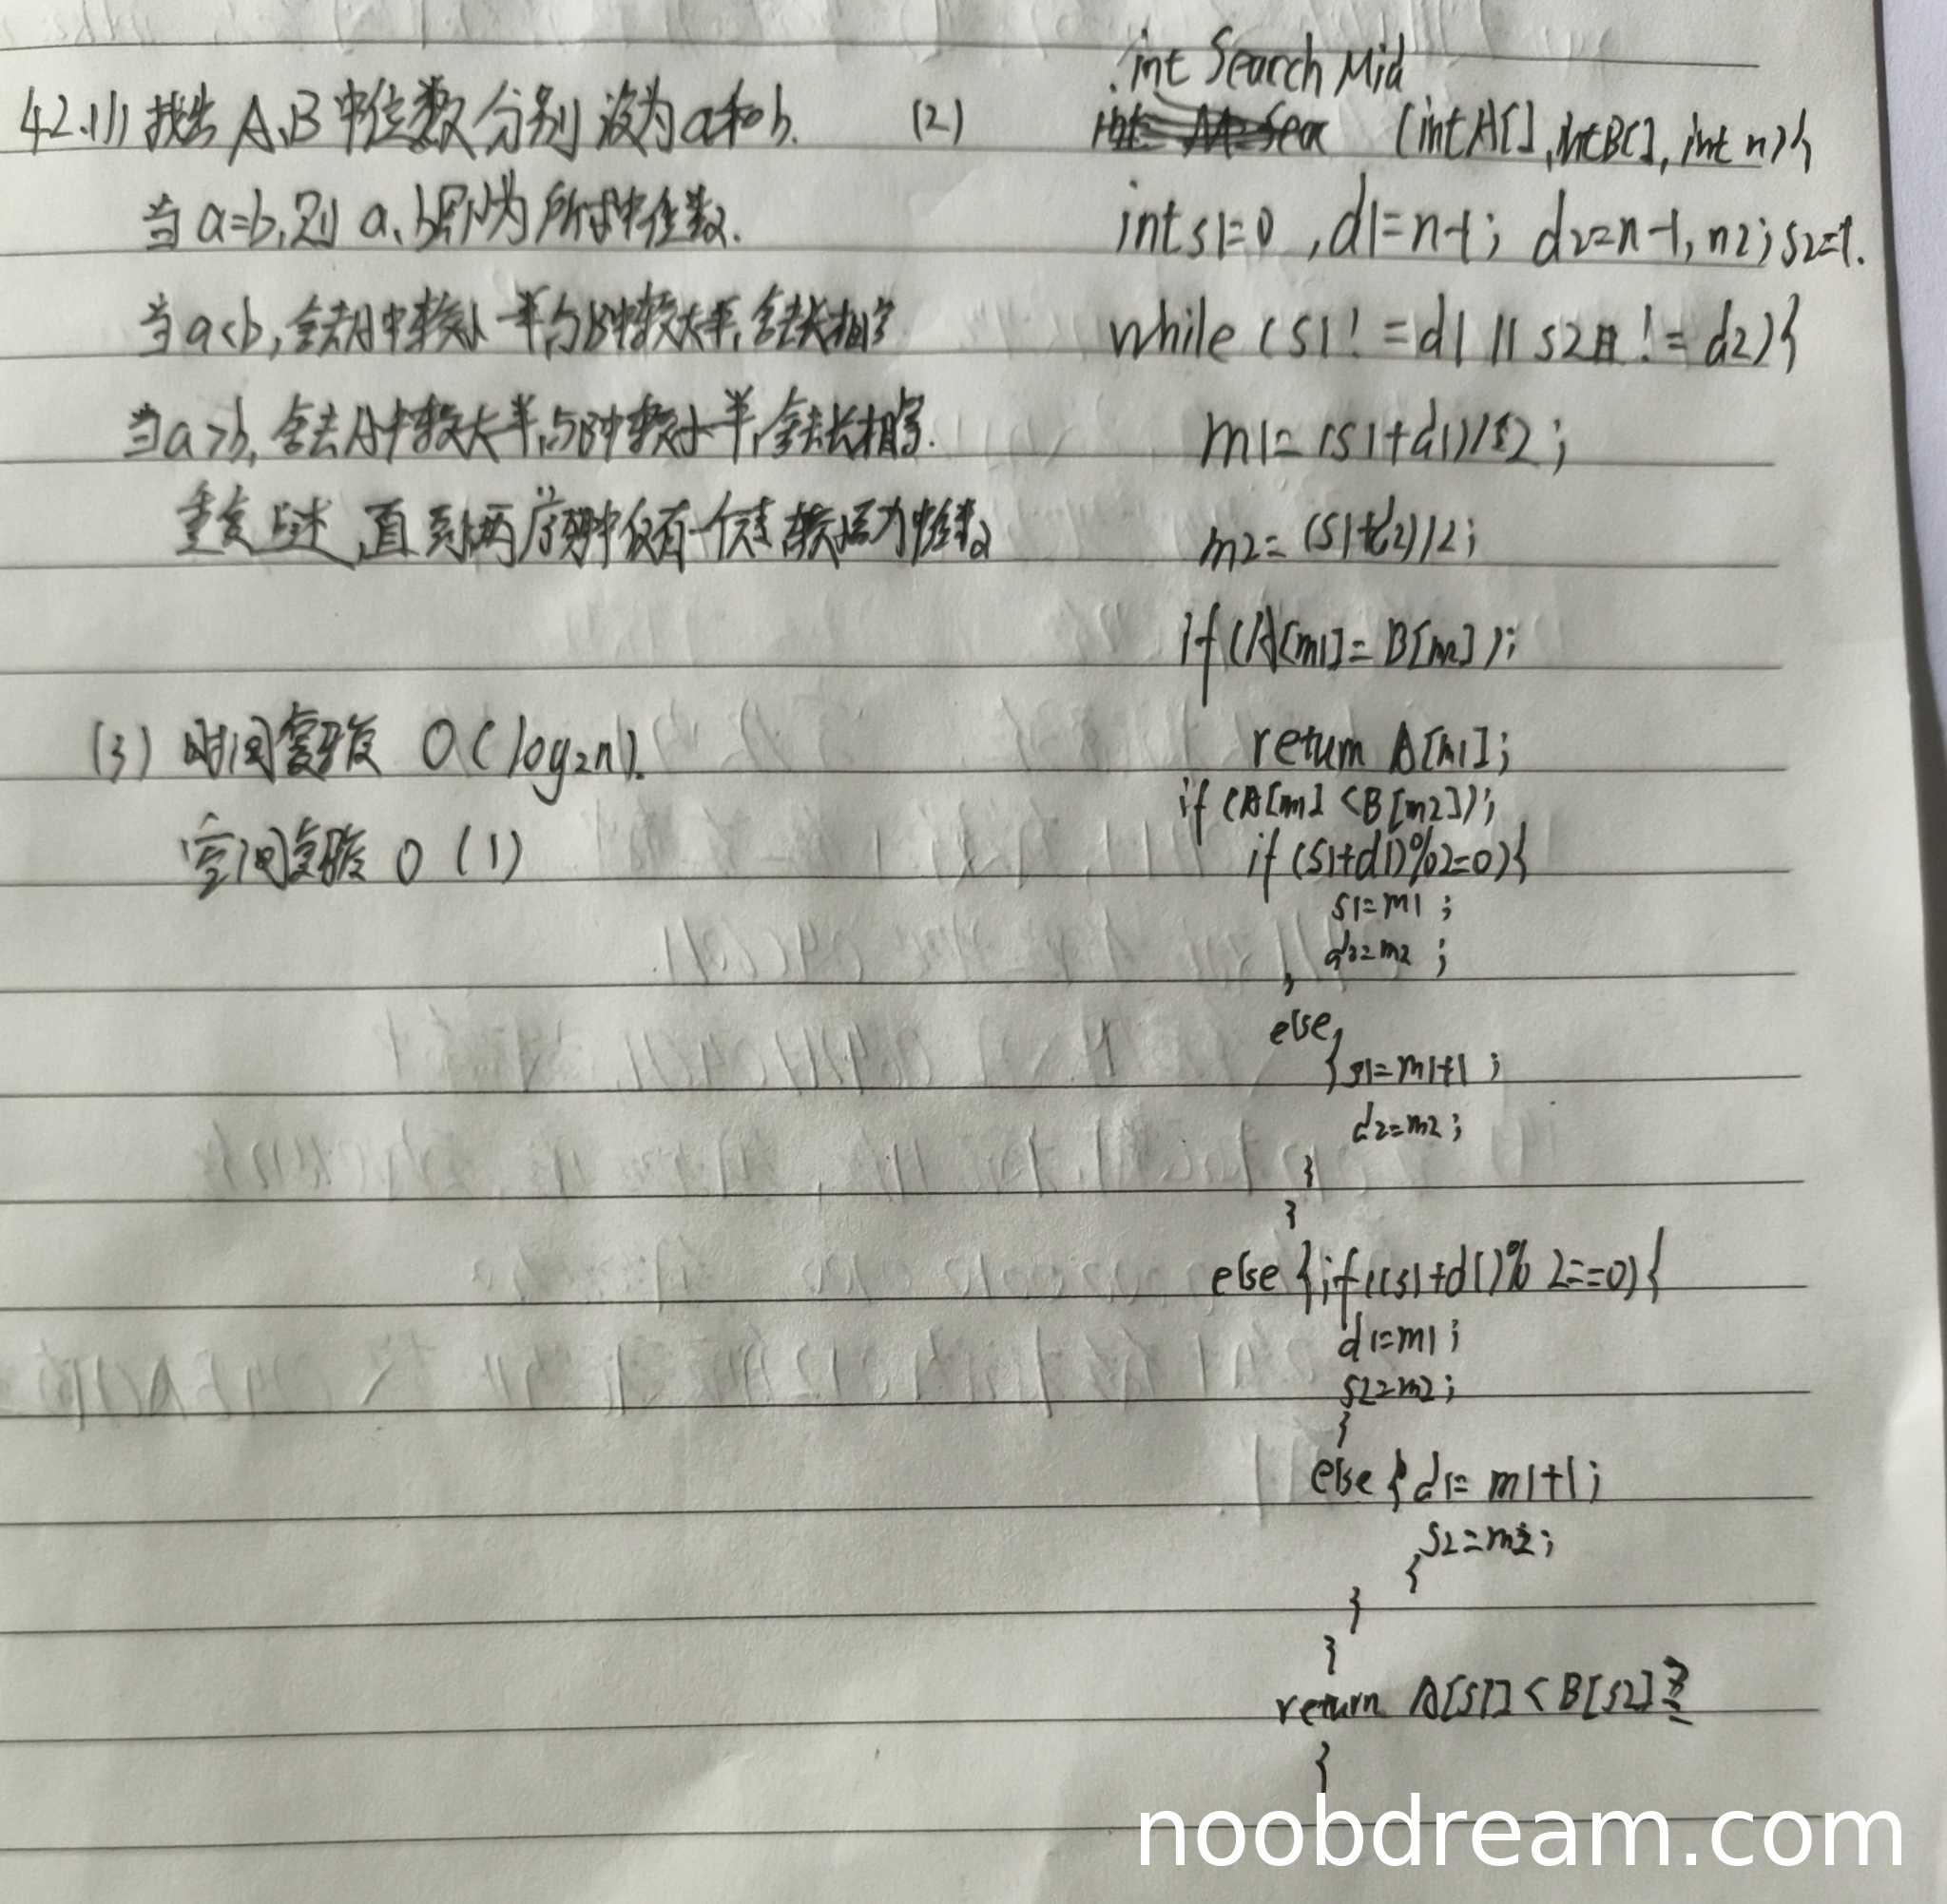 42.(1) 找出 A、B 中位数分别设为a和b.
当 a=b,则 a、b即为所求中位数.
当 a<b,舍去A中较小一半与B中较大半,舍去长相等
当 a>b,舍去A中较大半,与B中较小半,舍去长相等.
重复上述,直到两序列中仅有一个元素 较小为中位数
(3) 时间复杂度 O(log₂n).
空间复杂度 O(1)
(2) int Search Mid
(int A[], int B[], int n){
int s1=0 ,d1=n-1; d2=n-1, m2; s2=1.
while (s1! =d1 || s2 != d2){
m1= (s1+d1)/2;
m2= (s1+d2)/2;
if (A[m1]= B[m2]);
return A[m1];
if (A[m1 <B[m2]);
if (s1+d1)%2=0){
s1=m1 ;
d2=m2 ;
}
else
{s1=m1+1 ;
d2=m2;
}
}
else {if((s1+d1)% 2==0){
d1=m1;
s2=m2;
}
else { d1= m1+1;
s2=m2;
{
}
}
return A[s1]<B[s2]?
{
noobdream.com